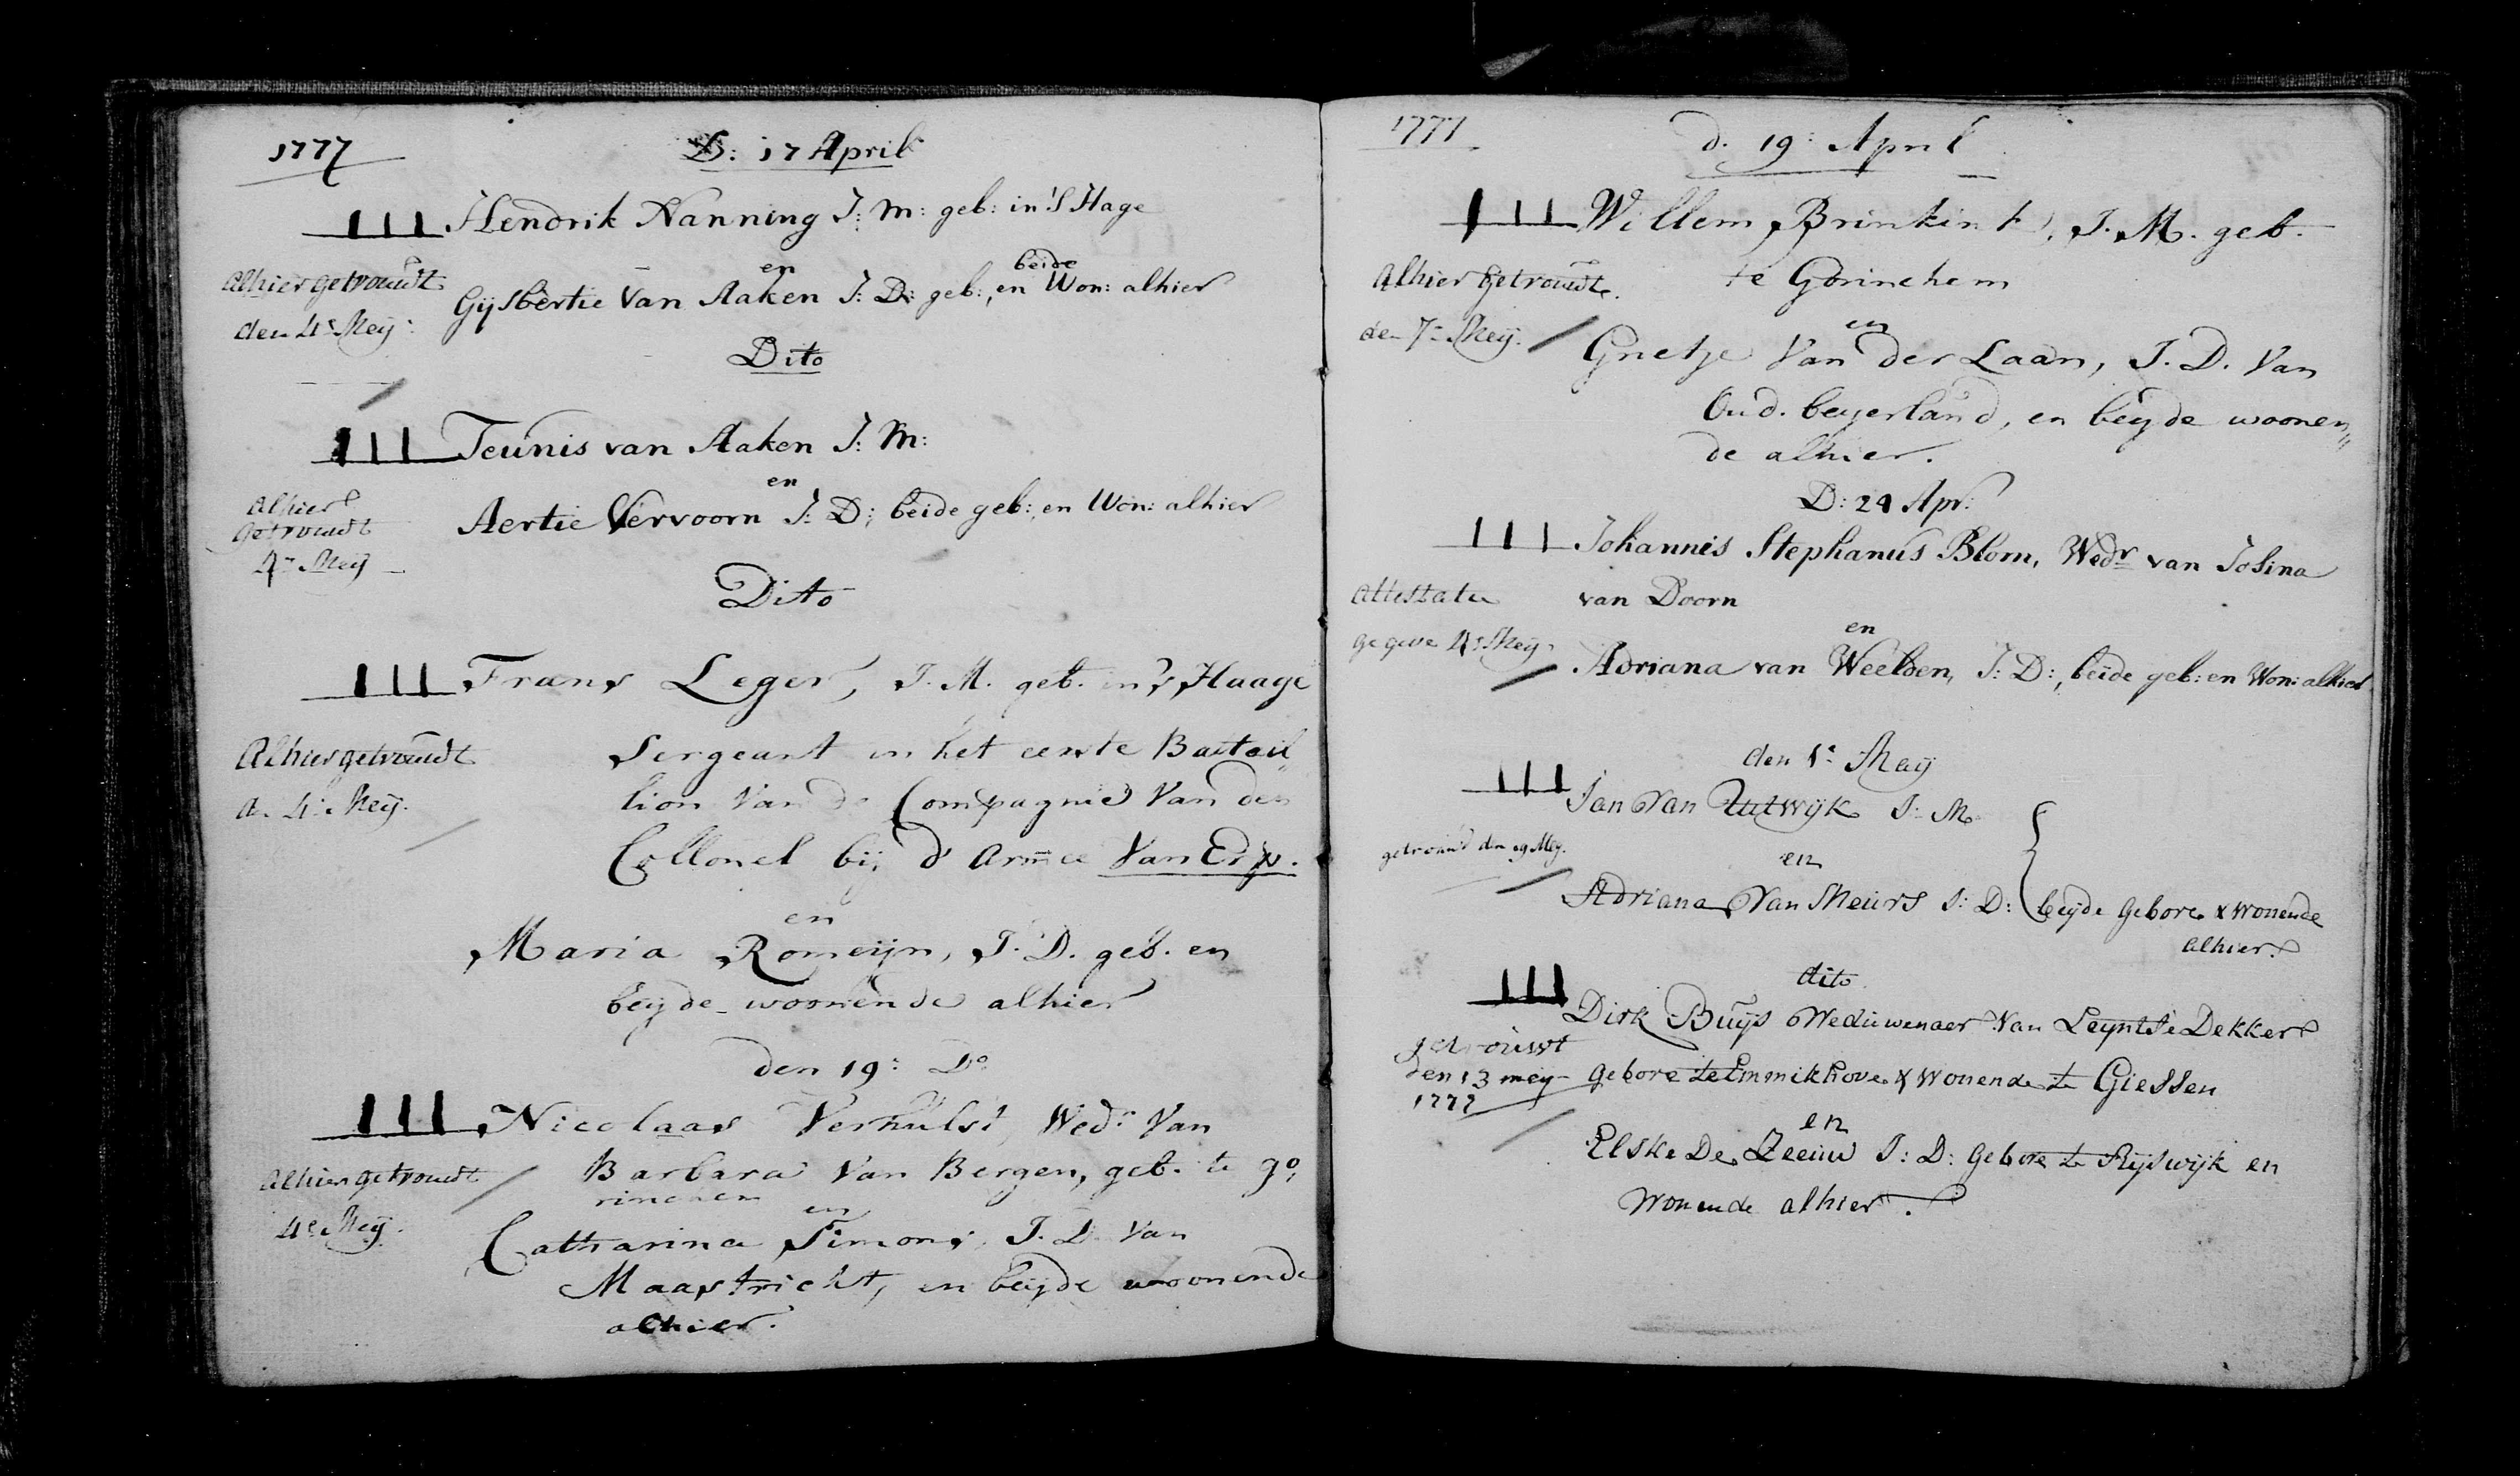 1777
D: 17 April
Hendrik Nanning J: M: geb: in 'S Hage
en
beide
Alhier getrouwdt
Gijsbertie van Aaken J: D: geb:, en Won: alhier
den 4e Meij:
Dito
Teunis van Aaken J: M:
en
Alhier
Aertie Vervoorn J: D:, beide geb:, en Won: alhier
getrouwdt
4e Meij
Dito
Frans Leger, J. M. geb. in 's Haage
Alhier getrouwdt
Sergeant in het eerste Batail
de 4e Meij.
lion Van de Compagnie Van den
Collonel bij d' Armee Van Erp.
en
Maria Romeijn, J. D. geb. en
beyde woonende alhier
den 19: Do
Nicolaas Verhulst, Wedr Van
Alhier getrouwdt
Barbara Van Bergen, geb. te Go
rinchem
4e Meij.
en
Catharina Simons, J. D. Van
Maastricht, en beijde woonende
alhier.
1777
d. 19: April
Willem Brinkink, J. M. geb.
Alhier getrouwdt.
te Gorinchem
den 7e Meij.
en
Grietje Van der Laan, J. D. Van
Oud. beyerland, en beyde woonen
de alhier.
D: 24 Apr:
Johannes Stephanus Blom, Wedr van Josina
Attestatie
van Doorn
gegeve 4e Meij.
en
Adriana van Weelden, J: D:, beide geb: en Won: alhier
den 1e Maij
Jan Van Uutwijk J: M
getrouwd den 19 Meij.
en
Adriana Van Meurs J: D: beijde Gebore & wonende
alhier.
dito
Dirk Buijs Weduwenaer Van Leyntie Dekker
getrouwt
den 13 meij
gebore te Emmikhove & wonende te Giessen
1777
en
Elske De Zeeuw J: D: Gebore te Rijswijk en
wonende alhier.